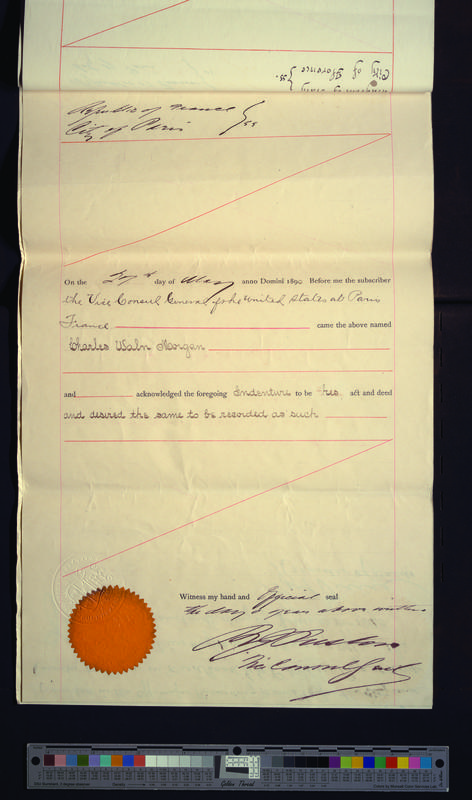 City of Florence } ss.
Republic of France }
City of Paris } ss
On the 27th day of May anno Domini 1890 Before me the subscriber
the Vice Consul General of the United States at Paris
France came the above named
Charles Waln Morgan
and acknowledged the foregoing Indenture to be his act and deed
and desired the same to be recorded as such
Witness my hand and Official seal
the day & year above written
Vice Consul Genl